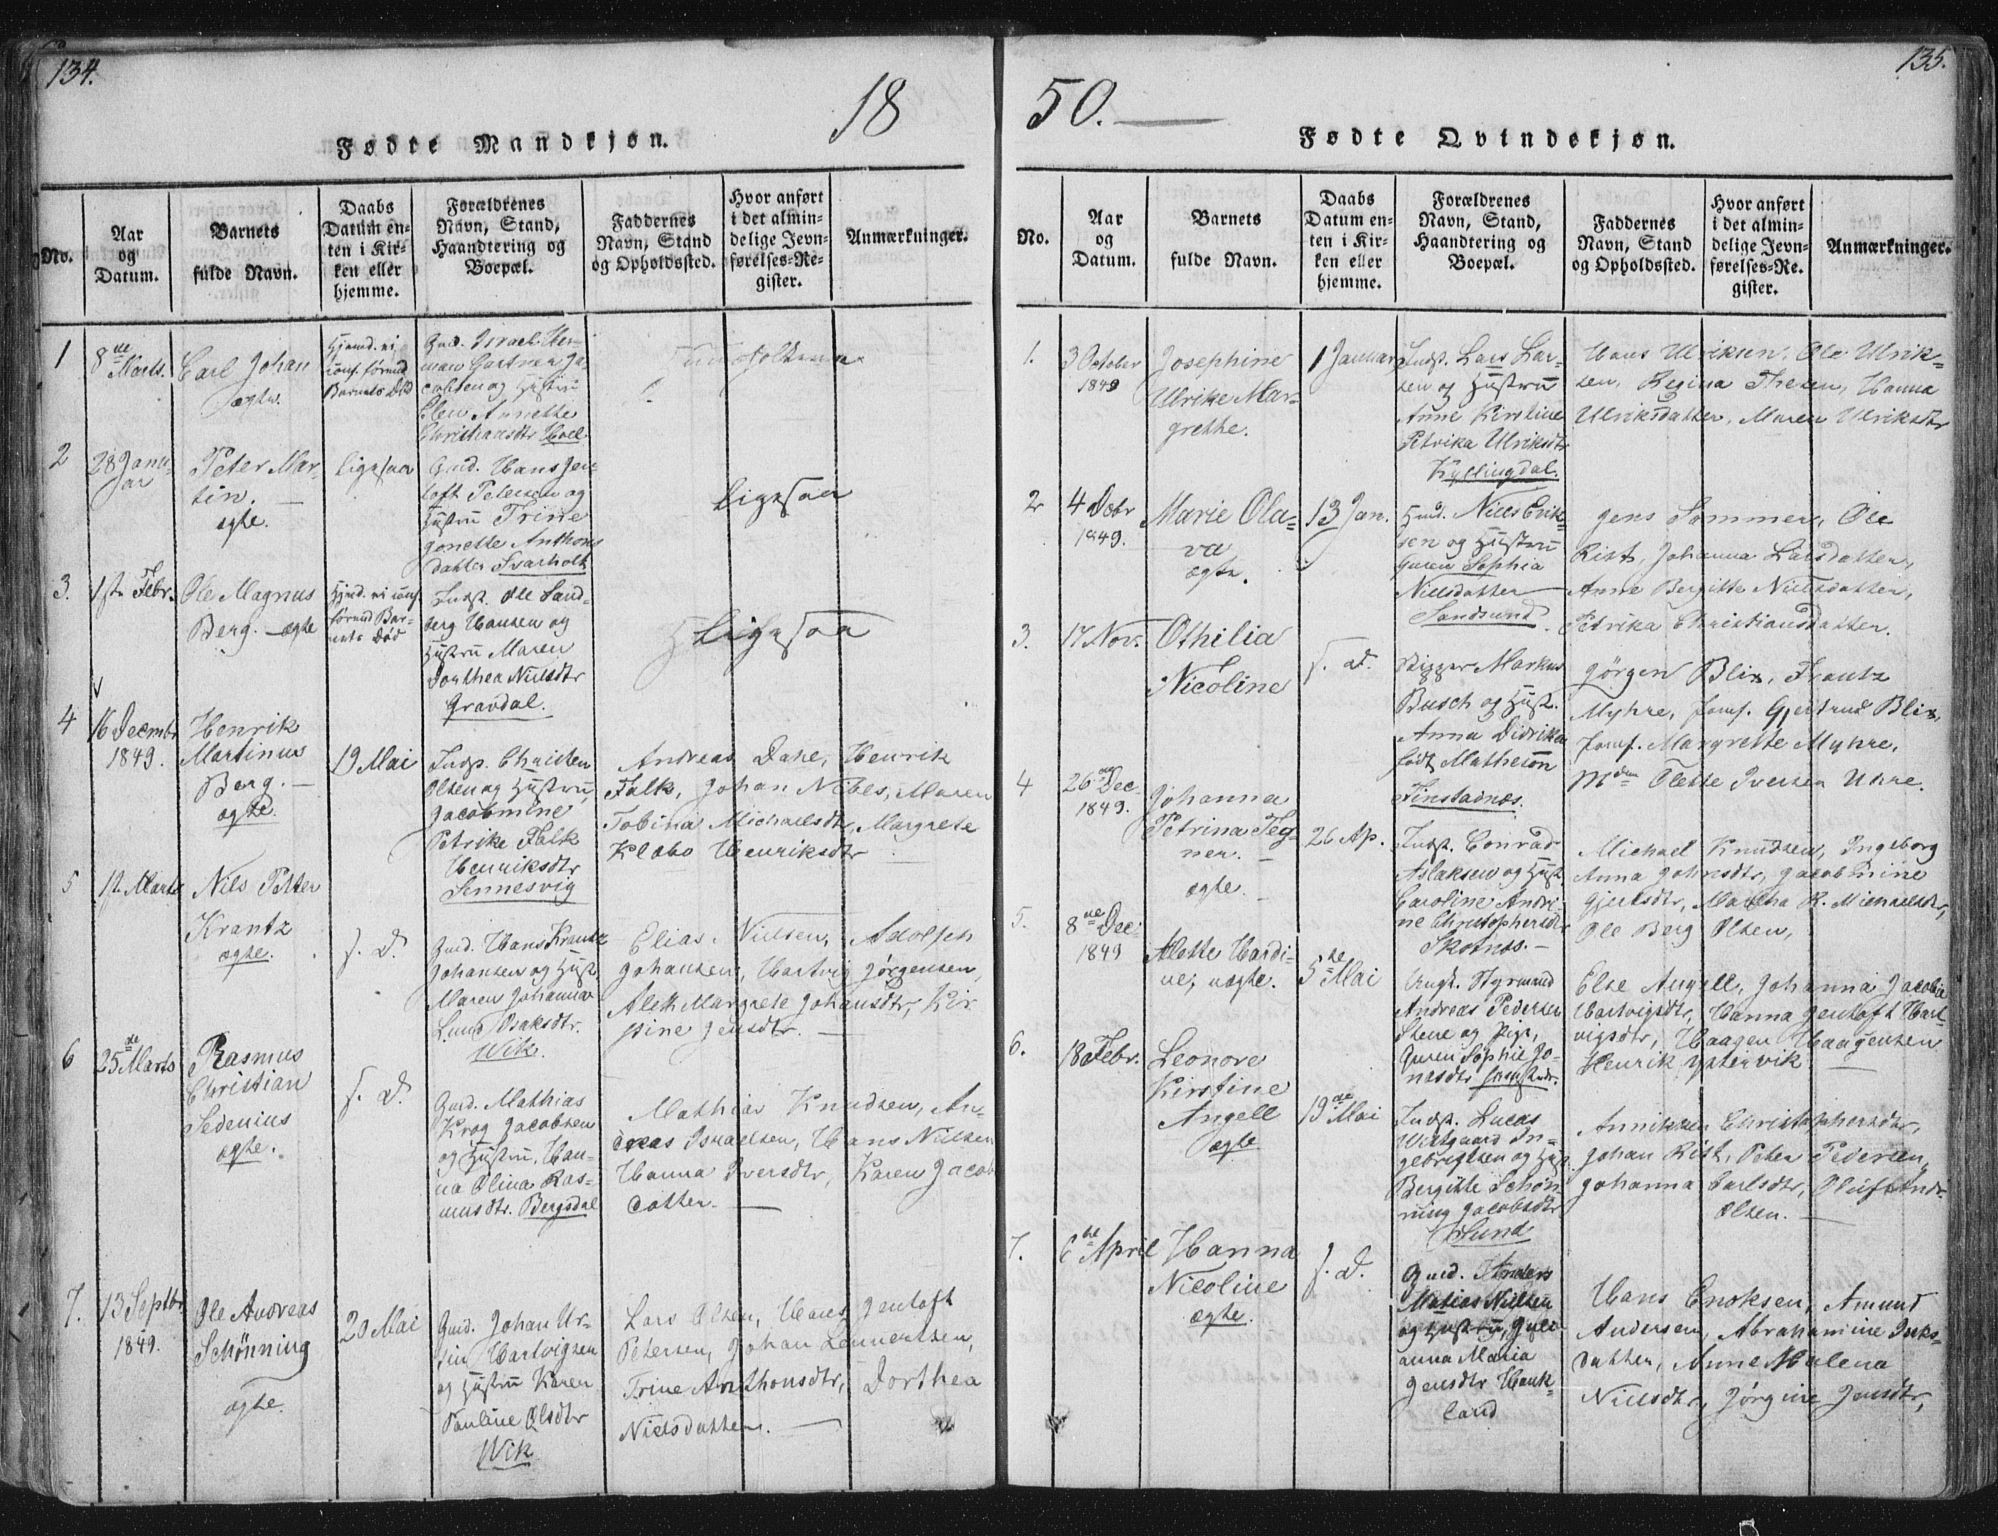 134.
18
Fødte Mandkjøn.
No.
Aar
og
Datum.
Barnets
fulde Navn.
Daabs
Datum en-
ten i Kir-
ken eller
hjemme.
Forældrenes
Navn, Stand,
Haandtering og
Boepæl.
Faddernes
Navn, Stand
og Opholdssted.
Hvor anført
i det almin-
delige Jevn-
førelses-Re-
gister.
Anmærkninger.
1
8de
Marts.
Carl Johan
ægte.
Hjemd. ei
conf. forend
Barnets Død
Gmd. Israel Her-
man Gartner Ja-
cobsen og Hustru
Elen Annette
Christiansdtr Hoel.
2
28 Janu-
ar
Peter Mar-
tin.
ægte.
Ligesaa
Gmd. Hans Jen-
toft Petersen og
Hustru Trine
Jonette Anthons
datter Svarholt
Ligesaa
3.
1ste Febr.
Ole Magnus
Berg. ægte
Hjmd. ei conf.
førend Bar-
nets Død
Indst. Ole Sand-
berg Hansen og
Hustru Maren
Dorthea Nielsdtr
Gravdal.
Ligesaa
4
16 Decembr
1849.
Henrik
Martinus
Berg. —
ægte.
19 Mai
Indst. Christen
Olsen og Hustru,
Jacobmine
Petrike Falk
Henriksdtr
Sennesvig
Andreas Dahe, Henrik
Falk, Johan Nibes, Maren
Tobina Michaelsdtr, Margrete
Klabo Henriksdtr
5
12 Marts
Nils Petter
Krantz
ægte.
s. D.
Gmd. Hans Krantz
Johansen og Hust.
Maren Johanna
Lund Isaksdtr.
Wik.
Elias Nielsen, Adolph
Johansen, Hartvig Jørgensen,
Alet Margrete Johansdtr, Kir
stine Jensdtr. —
6
25de Marts
Rasmus
Christian
Sedenius
ægte.
s. D.
Gmd. Mathias
Krog Jacobsen
og Hustru, Han-
na Olina Ras-
musdtr. Bergsdal
Mathias Knudsen, An-
dreas Israelsen, Hans Nielsen
Hanna Iversdtr, Karen Jacob
datter. —
7.
13 Septbr
1849.
Ole Andreas
Schønning
ægte.
20 Mai
Gmd. Johan Ur-
sin Hartvigsen
og Hustru Karen
Pauline Olsdtr
Wik
Lars Olsen, Hans Jentoft
Petersen, Johan Lennertsen,
Trine Anthonsdtr, Dorthea
Nielsdatter. —
135.
50. —
Fødte Qvindekjøn.
No.
Aar
og
Datum.
Barnets
fulde Navn.
Daabs
Datum en-
ten i Kir-
ken eller
hjemme.
Forældrenes
Navn, Stand,
Haandtering og
Boepæl.
Faddernes
Navn, Stand
og Opholdssted.
Hvor anført
i det almin-
delige Jevn-
førelses-Re-
gister.
Anmærkninger.
1.
3 October
1849
Josephine
Ulrike Mar-
grethe.
1 Januar
Indst. Lars Lar-
sen og Hustru
Anne Kirstine
Petrika Ulriksdtr
Kyllingdal.
Hans Ulriksen, Ole Ulrik-
sen, Regina Thesen, Hanna
Ulriksdatter, Maren Ulriksdtr
2
4 Decbr
1849.
Marie Ola-
va
ægte.
13 Jan.
Hmd. Niels Erik-
sen og Hustru
Guren Sophia
Nielsdatter
Sandsund.
Jens Sommer, Ole
Rist, Johanna Larsdatter,
Anne Bergitte Nielsdatter,
Petrika Christiansdatter.
3.
17 Nov.
Othilia
Nicoline
s. d.
Bygger Markus
Busch og Hust.
Anna Didriken
født Matheson
Finstadnæs.
Jørgen Blix, Frantz
Myhre, Jomf. Gjertrud Blix,
Jomf. Margrette Myhre,
Mdm Olette Iversen Uhre.
4
26de Dec.
1849.
Johanna
Petrina Teg-
ner. —
ægte.
26 Ap.
Indst. Conrad
Aslaksen og Hust.
Caroline Andri-
ne Christophersdtr
Skotnæs. —
Michael Knudsen, Ingeborg
Anna Johnsdtr, Jacobmine
Gjertsdtr, Martha R. Michaelsdtr,
Ole Berg Olsen,
5.
8de Dec.
1849
Alette Hardi-
ne, uægte.
5te Mai
Ungk. Styrmand
Andreas Pedersen
Stene og Pige,
Guren Sophie Jo-
nasdtr
Else Angell, Johanna Jacobia
Hartvigsdtr, Hanna Jentoft Hart-
vigsdtr, Haagen Haagensen
Henrik Yttervik —
6.
18 Febr.
Leonore
Kirstine
Angell
ægte
19de Mai
Indst. Lucas
Westgaard In-
gebrigtsen og Hust.
Bergitte Schøn-
ning Jacobsdtr
Annikken Christophersdtr,
Johan Rist, Peter Pedersen,
Johanna Carlsdtr,
Olsen. —
7.
6te April
Hanna
Nicoline
ægte.
s. d.
Gmd. Anders
Matias Nielsen
og Hustru, Jule-
anna Maria
Jensdtr Hauk-
land
Hans Enoksen, Amund
Andersen, Abrahamine Isaks-
datter, Anne Malena
Nielsdtr, Jørgine Jensdtr,